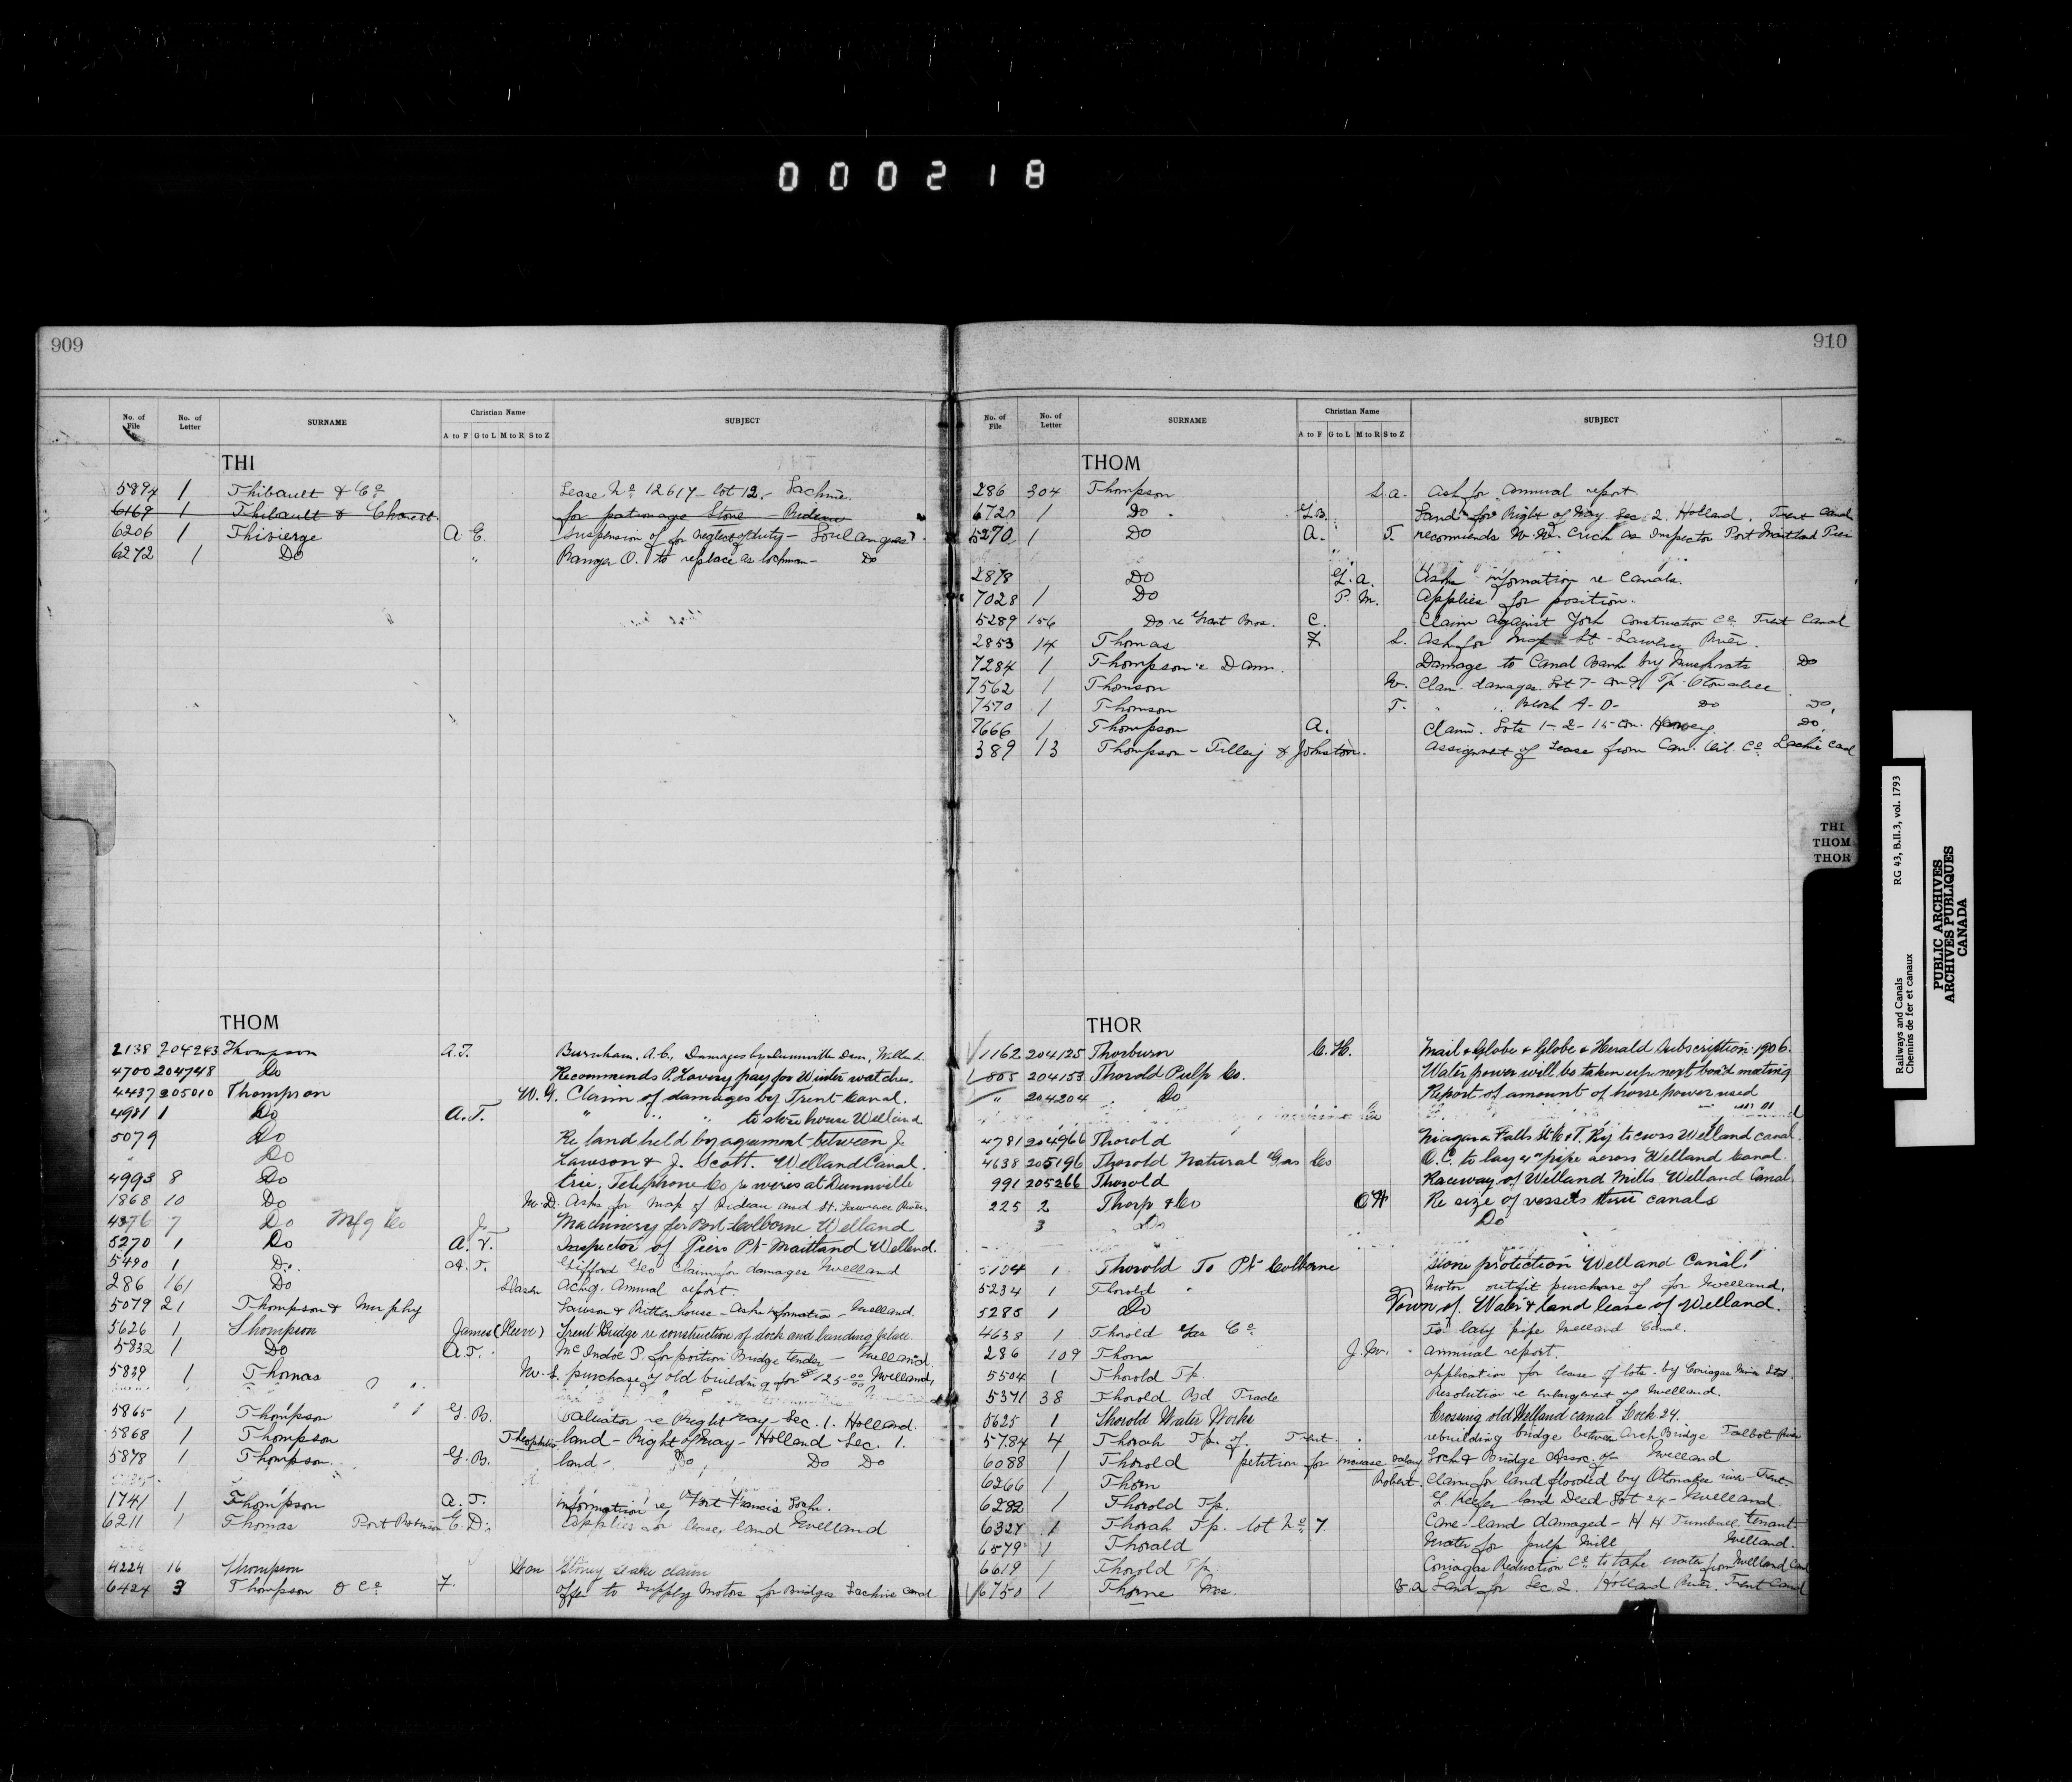 000218
909
No. of File No. of Letter SURNAME Christian Name A to F G to L M to R S to Z SUBJECT
THI
5894 1 Thibault & Co Lease No 12617 - lot 12 - Lachine
6169 1 Thibault & Charest for patronage Stone - Rideau
6206 1 Thivierge A. E. Suspension of for neglect of duty - Soulanges
6272 1 Do " O. to replace as lockman - Do
THOM
2138 204243 Thompson A.T. Burnham, A.C., Damages by Dunnville Dam, Welland
4700 204748 Do Recommends P. Lavery pay for Winter watches.
4437 205010 Thompson W.G. Claim of damages by Trent Canal.
4981 1 Do A.T. " " " to store house Welland
5079 Do Re land held by agreement between J.
" Do Lawson & J. Scott. Welland Canal.
4993 8 Do Erie Telephone Co re wires at Dunnville
1868 10 Do M.D. Asks for map of Rideau and St. Lawrence River.
4376 7 Do Mfg Co J. Machinery for Port Colborne Welland
5270 1 Do A.T. Inspector of Piers Pt Maitland Welland.
5490 1 Do. A.T. Gifford Geo Claim for damages Welland
286 161 Do Actng. Annual report.
5079 21 Thompson & Murphy Lawson & Rittenhouse - Asks information - Welland.
5626 1 Thompson James (Reeve) Trent Bridge re construction of dock and landing place.
5832 1 Do A.T. McIndoe P. for position Bridge tender - Welland.
5839 1 Thomas W.S. purchase of old building for $125.00 Welland,
5865 1 Thompson G.B. Valuator re Right Way - Sec. 1. Holland.
5868 1 Thompson Theophilus land - Right of Way - Holland Sec. 1.
5878 1 Thompson. G.B. land - Do Do Do
1741 1 Thompson A.T. information re Fort Francis Lock.
6211 1 Thomas Port Robinson E.D. Applies for lease, land Welland
4224 16 Thompson Wm Stoney Lake claim
6424 3 Thompson & Co F. offer to supply motors for Bridges Lachine Canal
910
No. of File No. of Letter SURNAME Christian Name A to F G to L M to R S to Z SUBJECT
THOM
286 304 Thompson S.A. Ask for annual report.
6720 1 Do. G.B. Land for Right of Way Sec. 2. Holland. Trent Canal
5270 1 Do A. T. recommends W.W. Crich as Inspector Port Maitland Pier
2878 Do G.A. Asks information re Canals.
7028 1 Do P.M. Applies for position.
5289 156 Do re Grant Bros. C. Claim against York Construction Co. Trent Canal
2853 14 Thomas F. S. Ask for map St. Lawrence River.
7284 1 Thompson Damage to Canal Bank by Muskrats Do
7562 1 Thomson W. Claim damages Lot 7 - Con 9 Tp. Otonabee
7570 1 Thomson T. " " Block A - D - Do Do,
7666 1 Thompson A. Claim. Lots 1-2-15 Con. Harvey. Do
389 13 Thompson - Tilley & Johnston. Assignment of Lease from Can. Oil Co Lachine Canal
THOR
1162 204125 Thorburn C.H. Mail & Globe & Globe & Herald Subscription 1906.
805 204153 Thorold Pulp Co. Water power will be taken up next board meeting
" 204204 Do Report of amount of horse power used
4781 204966 Thorold Niagara Falls St. C. & T. Ry to cross Welland canal.
4638 205196 Thorold Natural Gas Co O.C. to lay 4" pipe across Welland Canal.
991 205266 Thorold Raceway of Welland Mills Welland Canal.
225 2 Thorp & Co O.H. Re size of vessels thru canals
3 Do Do
1 Thorold To Pt Colborne stone protection Welland Canal.
5234 1 Thorold Motor outfit purchase of for Welland.
5285 1 Do Town of. Water & land lease of Welland.
4638 1 Thorold Gas Co To lay pipe Welland Canal.
286 109 Thom J.W. annual report.
5504 1 Thorold Tp. application for lease of lots. by Coniagas Mines Ltd.
5371 38 Thorold Bd Trade Resolution re enlargement of Welland.
5625 1 Thorold Water Works Crossing old Welland canal Lock 24.
5784 4 Thorah Tp. of. Trent. rebuilding bridge between Arch Bridge Talbot River
6088 1 Thorold petition for increase salary Lock & Bridge Assoc. of Welland
6266 1 Thorn Robert. Claim for land flooded by Otonabee river - Trent.
6282 1 Thorold Tp. G. Keefer land Deed Lot 24 - Welland.
6327 1 Thorah Tp. lot No 7 Cane - land damaged - H H Turnbull tenant.
6579 1 Thorald Water for pulp mill Welland.
6619 1 Thorold Tp. Coniagas Reduction Co. to take water from Welland Canal
6750 1 Thorne Mrs. E.A. Land for Sec 2. Holland River. Trent Canal
THI
THOM
THOR
Railways and Canals RG 43, B.II.3, vol. 1793
Chemins de fer et canaux
PUBLIC ARCHIVES
ARCHIVES PUBLIQUES
CANADA